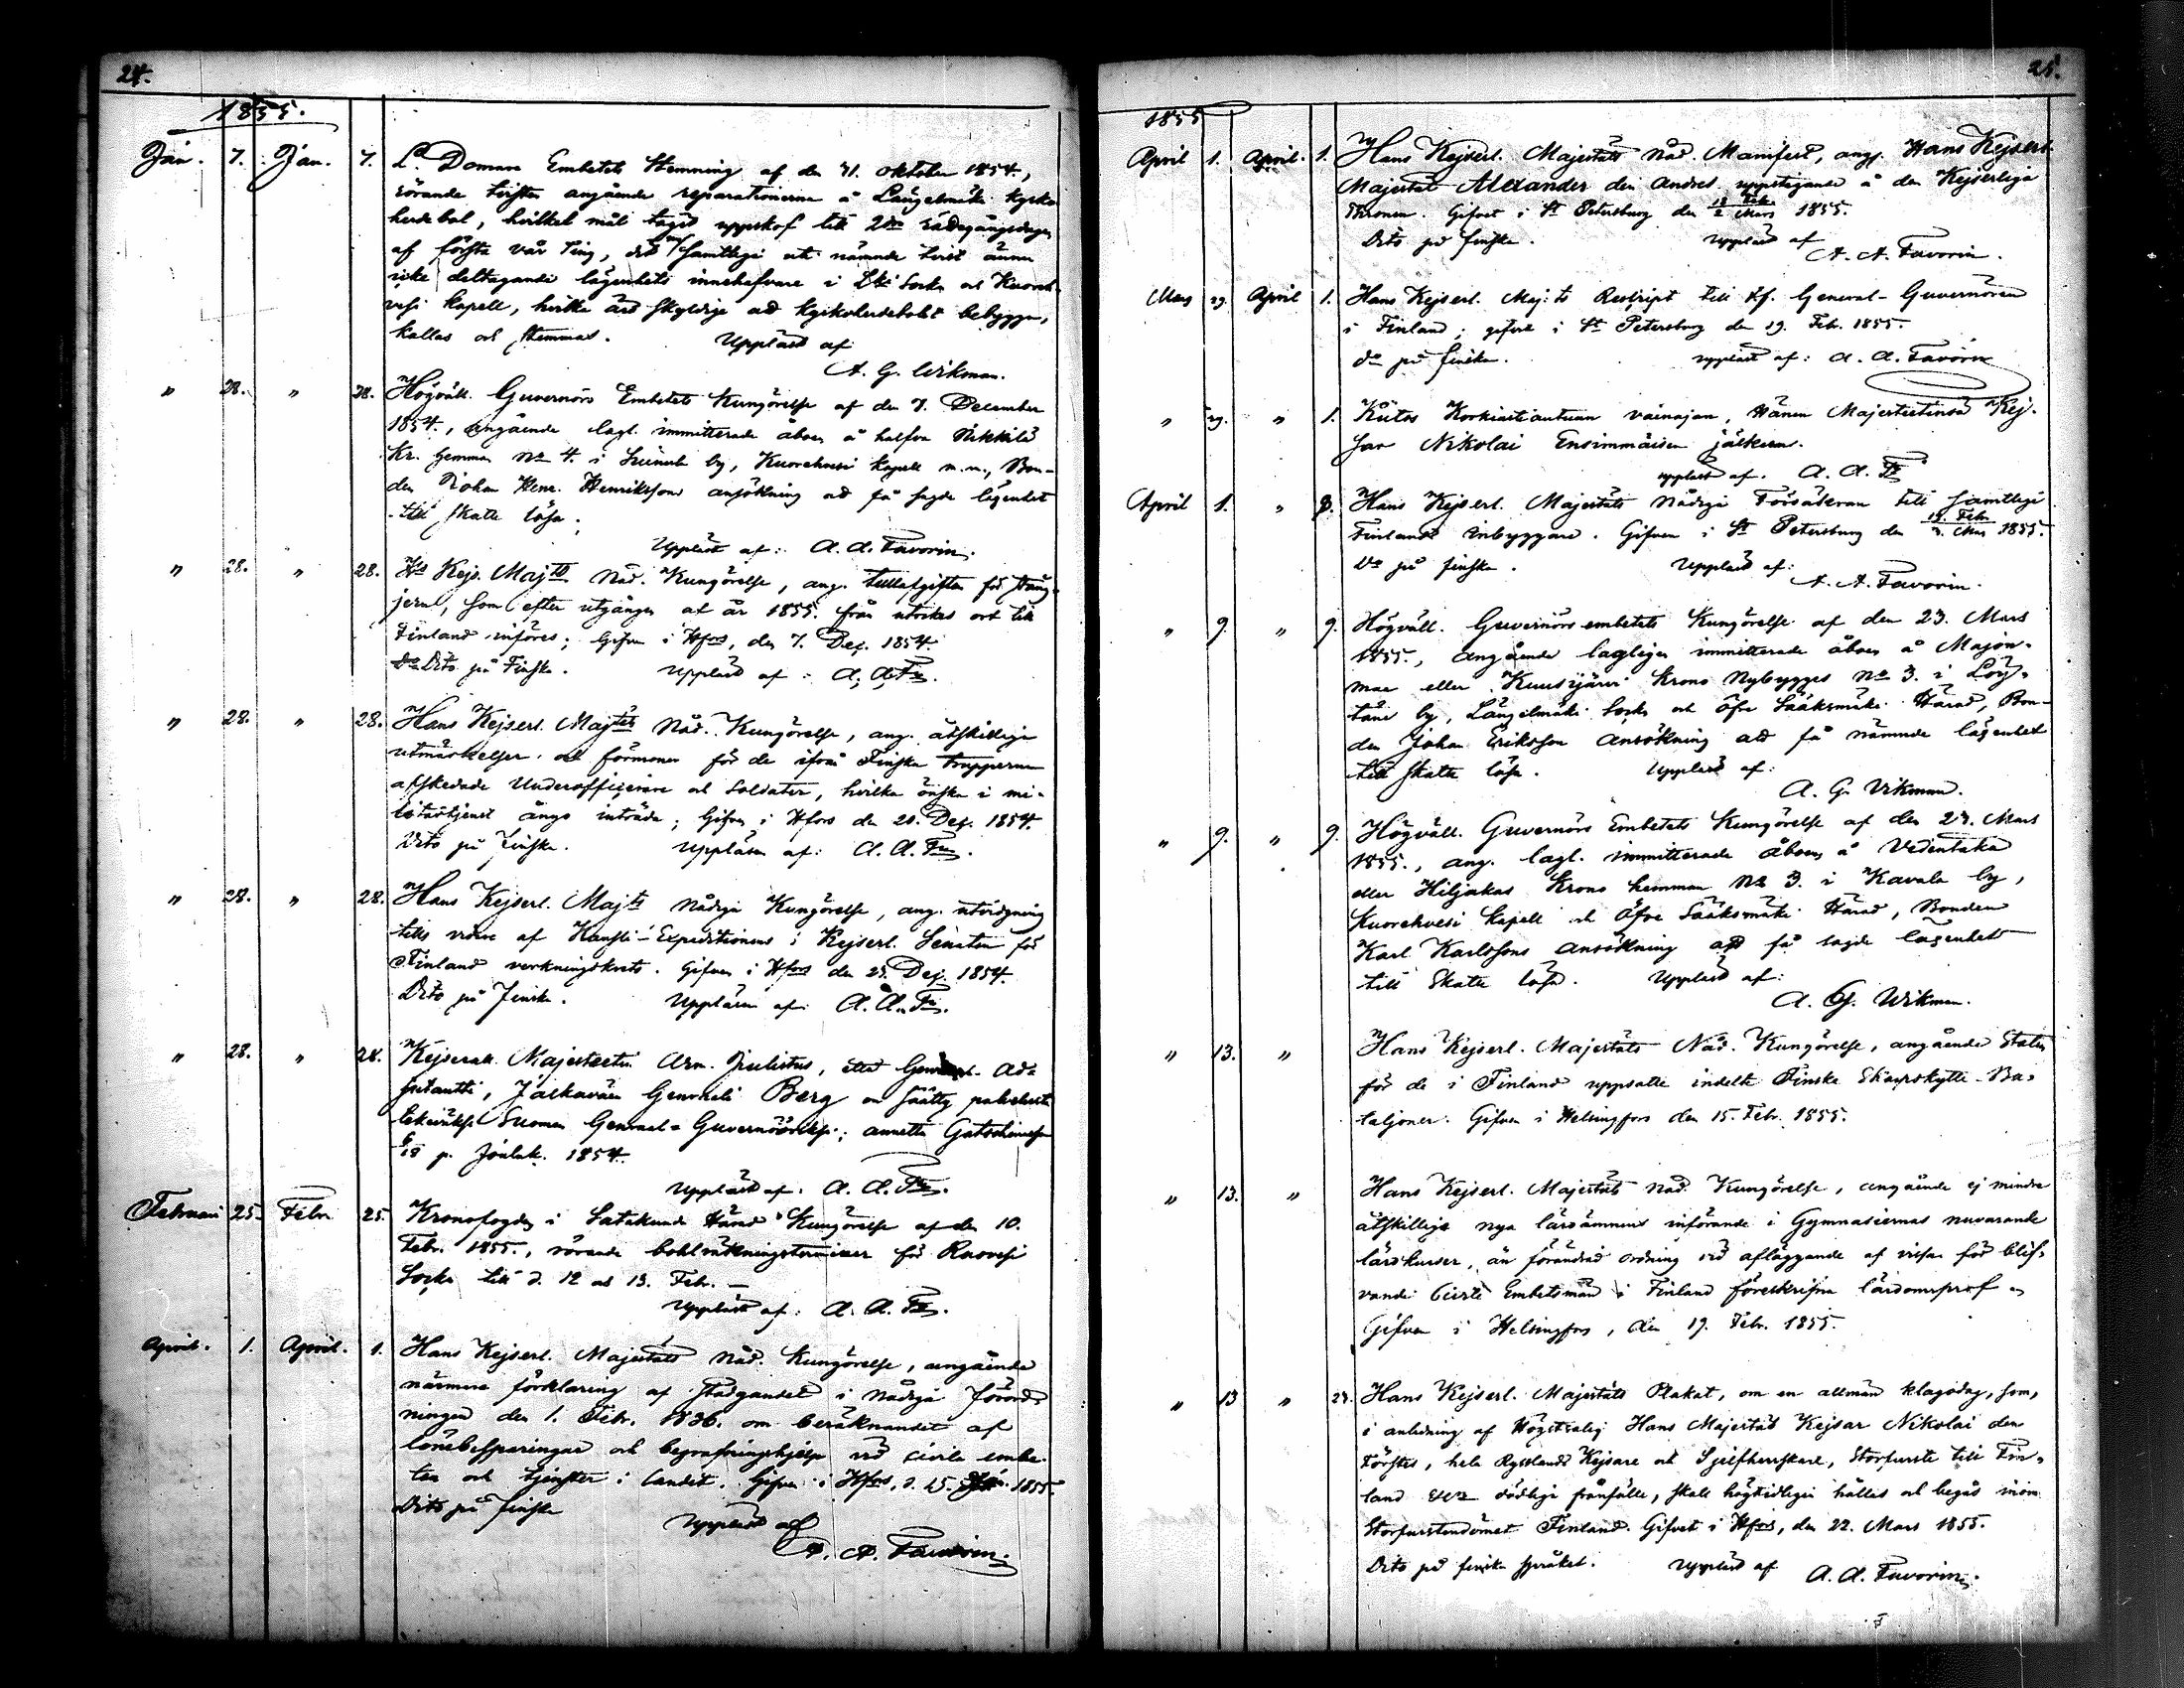 24.
1855.
Jan. 7. Jan. 7. Ld. Domare Embetets Stemning af den 31. oktober 1854,
rörande tvisten angående reparationerna å Längelmäki kyrko-
herdebol, hvilket mål tagit uppskof till 2dra rådegångsdagen
af första vår Ting, då samtlige uti nämnde tvist ännu
icke deltagande lägenhets innehafvare i Lki Sockn och Kuoreh-
vesi kapell, hvilka äro skyldige att kyrkoherdebolet bebygga,
kallas och stemmas. Uppläst af
A. G. Wikman.
" 28. " 28. Högväll. Guvernörs Embetets Kungörelse af den 7. December
1854, angående lagl. immitterade åboen å halfva Nikkilä
Kr. hemman No 4. i Leinula by, Kuorehvesi kapell m.m., Bon-
den Johan Henr. Henrikssons ansökning att få sagde lägenhet
till skatte lösa.
Uppläst af: A. A. Favorin.
" 28. " 28. Hs Kejs. Majts Nåd. Kungörelse, ang. tullafgiften för stång-
jern, som efter utgången af år 1855. från utrikes ort till
Finland införes; Gifven i Hfors, den 7. Dec. 1854.
Dito på Finska. Uppläst af: A. A. Fn.
" 28. " 28. Hans Kejserl. Majts Nåd. Kungörelse, ang. åtskillige
utmärkelser och förmoner för de ifrån Finska tropperna
afskedade Underofficerare och Soldater, hvilka önska i mi-
litärtjenst ånyo inträda; Gifven i Hfors den 20. Dec. 1854.
Dito på Finska. Uppläsen af: A. A. Fn.
" 28. " 28. Hans Kejserl. Majts Nådiga Kungörelse, ang. utvidgning
tills vidare af Kansli-Expeditionens i Kejserl. Senaten för
Finland verkningskrets. Gifven i Hfors den 23. Dec. 1854.
Dito på Finska. Uppläsen af: A. A. Fn.
" 28. " 28. Kejserall. Majesteetin Arm. Julistus, että General-Ad-
jutantti, Jalkaväen Generali Berg on säätty palveluste
tekeväksi Suomen General-Guvernöörikse; annettu Gatschinassa
6/18 p. Jouluk. 1854.
Uppläst af: A. A. Fn.
Februari 25. Febr. 25. Kronofogden i Satakunda Härad Kungörelse af den 10.
Febr. 1855., rörande bohlräkningsterminer för Ruovesi
Sockn till d. 12 och 13. Febr. —
Uppläst af: A. A. Fn.
April. 1. April. 1. Hans Kejserl. Majestäts Nåd. Kungörelse, angående
närmare förklaring af stadgandet i Nådiga Förord-
ningen den 1. Febr. 1836. om beräknandet af
lönebesparingar och begrafningshjelp vid civile embe-
ten och tjenster i landet. Gifven i Hfors, d. 25. Jan. 1855.
Dito på finska
Uppläst af
A. A. Favorin.
25.
1855
April 1. April. 1. Hans Kejserl. Majestäts Nåd. Manifest, angg. Hans Kejserl.
Majestät Alexander den Andres uppstigande å den Kejserliga
Thronen. Gifvet i St Petersburg den 18 Febr./2 Mars 1855.
Dito på finska. Uppläst af
A. A. Favorin.
Mars 29. April 1. Hans Kejserl. Maj:ts Reskript till tf. General-Guvernören
i Finland; gifvet i St Petersburg den 19. Febr. 1855.
Do på finska. uppläst af: A. A. Favorin
" 29. " 1. Kiitos Korkiastiautuaan vainajan, Hänen Majesteetinsä Kej-
sar Nikolai Ensimmäisen jälkeen.
uppläst af. A. A. Fn
April 1. " 8. Hans Kejserl. Majestäts Nådiga Försäkran till samtlige
Finlands inbyggare. Gifven i St Petersburg den 19. Febr/3. Mars 1855.
Do på finska. Uppläst af:
A. A. Favorin.
" 9. " 9. Högväll. Guvernörs embetets Kungörelse af den 23. Mars
1855., angående lagligen immitterade åboen å Majon-
maa eller Kuusijärvi Krono Nybygges No 3. i Löy-
täne by, Längelmäki Sockn och Öfre Sääksmäki Härad, Bon-
den Johan Eriksson ansökning att få nämnde lägenhet
till skatte lösa. Uppläst af:
A. G. Vikman.
" 9. " 9. Högväll. Guvernörs Embetets Kungörelse af den 23. Mars
1855., ang. lagl. immitterade åboen å Vedentaka
eller Hiljakas Krono hemman No 3. i Kavala by,
Kuorehvesi kapell och Öfre Sääksmäki Härad, Bonden
Karl Karlssons ansökning att få sagde lägenhet
till Skatte lösa. Uppläst af:
A. G. Wikman.
" 13. " Hans Kejserl. Majestäts Nåd. Kungörelse, angående Staten
för de i Finland uppsatte indelte Finske Skarpskytte-Ba-
taljoner. Gifven i Helsingfors den 15. Febr. 1855.
" 13. " Hans Kejserl. Majestäts Nåd. Kungörelse, angående ej mindre
åtskillige nya läroämnens införande i Gymnasiernas nuvarande
lärokurser, än förändrad ordning vid afläggande af vissa för blif-
vande Civile Embetsmän i Finland föreskrifna lärdomsprof
Gifven i Helsingfors, den 19. Febr. 1855.
" 13 " 23. Hans Kejserl. Majestäts Plakat, om en allmän klagodag, som,
i anledning af Högstsalig Hans Majestät Kejsar Nikolai den
Förstes, hela Rysslands Kejsare och Sjelfherrskare, Storfurste till Fin-
land &c&c dödliga frånfälle, skall högtidligen hållas och begås inom
Storfurstendömet Finland. Gifvet i Hfors, den 22. Mars 1855.
Dito på finska språket. Uppläst af A. A. Favorin.